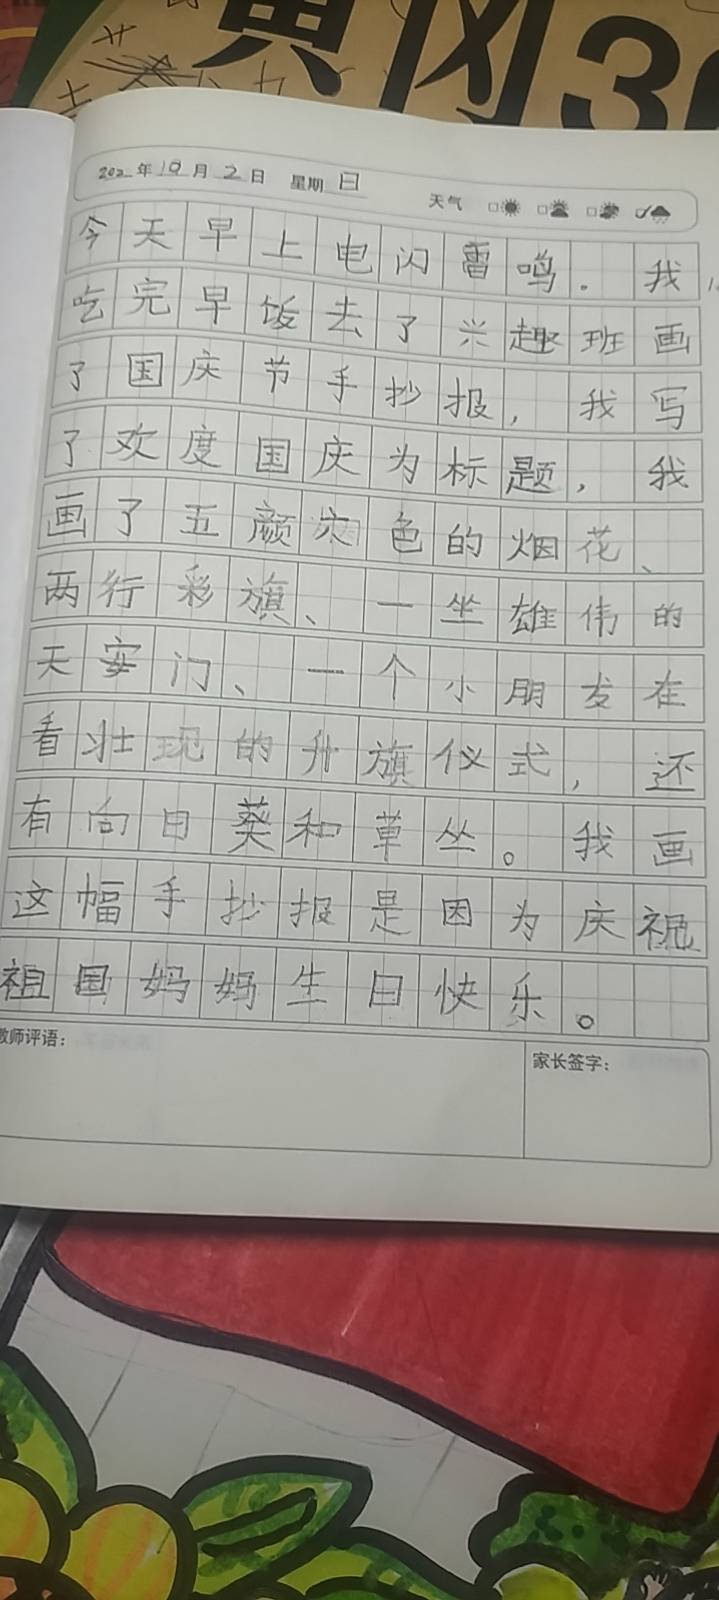 黄冈36
202 年 10 月 2 日 星期 日 天气
今天早上电闪雷鸣。我
吃完早饭去了兴趣班画
了国庆节手抄报，我写
了欢度国庆为标题，我
画了五颜六色的烟花、
两行彩旗、一坐雄伟的
天安门、一个小朋友在
看壮现的升旗仪式，还
有向日葵和草丛。我画
这幅手抄报是因为庆祝
祖国妈妈生日快乐。
教师评语：
家长签字：